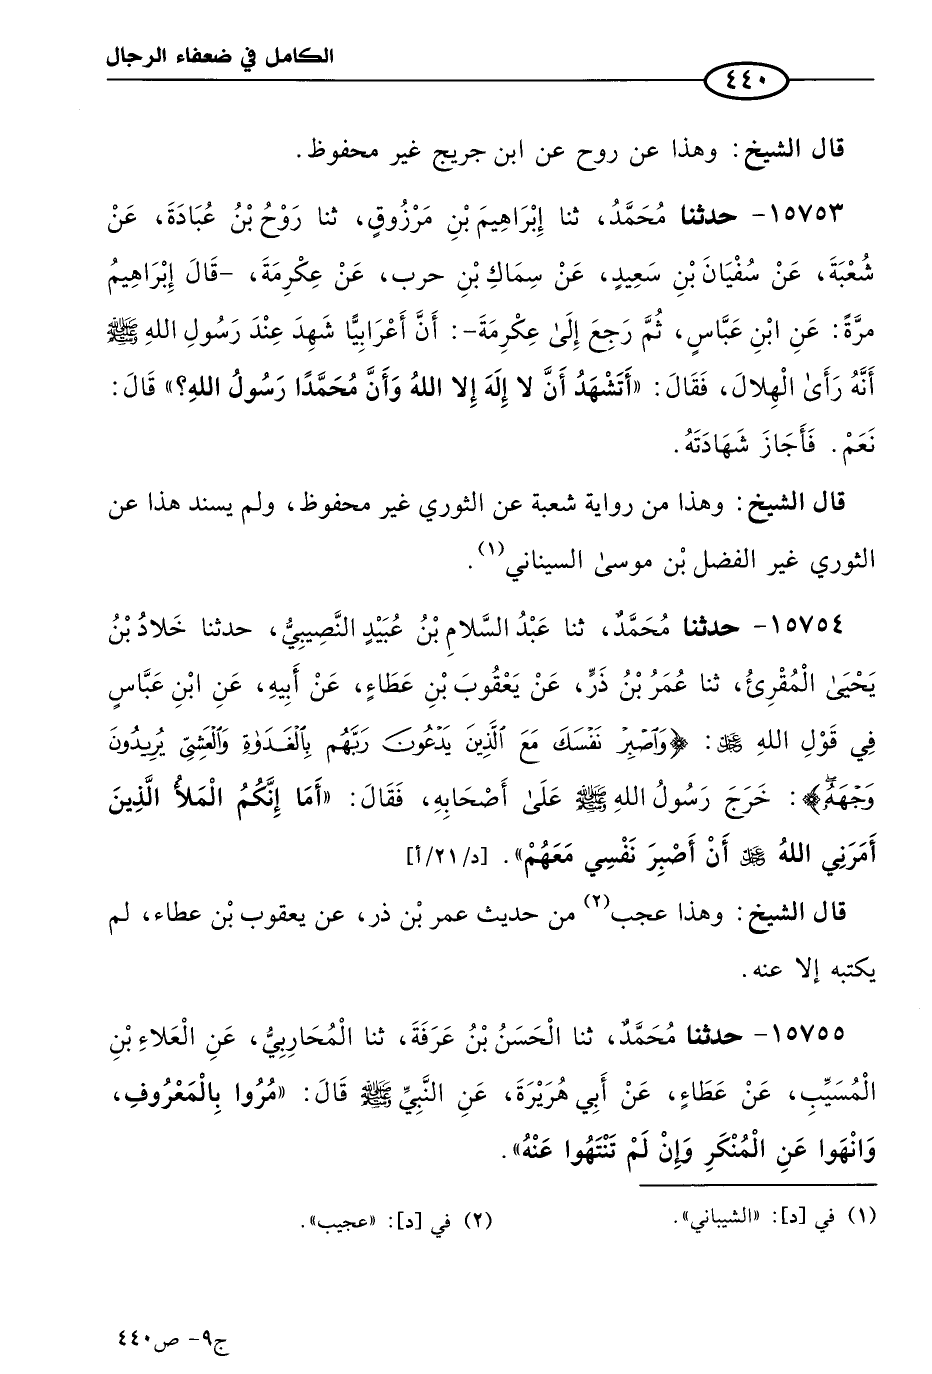 الكامل في ضعفاء الرجال
٤٤٠
قال الشيخ: وهذا عن روح عن ابن جريج غير محفوظ.
١٥٧٥٣- حدثنا مُحَمَّدُ، ثنا إِبْرَاهِيمَ بْنِ مَرْزُوقٍ، ثنا رَوْحُ بْنُ عُبَادَةَ، عَنْ
شُعْبَةَ، عَنْ سُفْيَانَ بْنِ سَعِيدٍ، عَنْ سِمَاكِ بْنِ حرب، عَنْ عِكْرِمَةَ، -قَالَ إِبْرَاهِيمُ
مرَّةً: عَنِ ابْنِ عَبَّاسٍ، ثُمَّ رَجِعَ إِلَىٰ عِكْرِمَةَ-: أَنَّ أَعْرَابِيًّا شَهِدَ عِنْدَ رَسُولِ اللهِ ﷺ
أَنَّهُ رَأَىٰ الْهِلالَ، فَقَالَ: «أَتَشْهَدُ أَنَّ لا إِلَهَ إِلا اللهُ وَأَنَّ مُحَمَّدًا رَسُولُ اللهِ؟» قَالَ:
نَعَمْ. فَأَجَازَ شَهَادَتَهُ.
قال الشيخ: وهذا من رواية شعبة عن الثوري غير محفوظ، ولم يسند هذا عن
الثوري غير الفضل بْن موسىٰ السيناني(١).
١٥٧٥٤- حدثنا مُحَمَّدٌ، ثنا عَبْدُ السَّلامِ بْنُ عُبَيْدٍ النَّصِيبِيُّ، حدثنا خَلادُ بْنُ
يَحْيَىٰ الْمُقْرِئُ، ثنا عُمَرُ بْنُ ذَرٍّ، عَنْ يَعْقُوبَ بْنِ عَطَاءٍ، عَنْ أَبِيهِ، عَنِ ابْنِ عَبَّاسٍ
فِي قَوْلِ اللهِ ﷻ: ﴿وَٱصْبِرْ نَفْسَكَ مَعَ ٱلَّذِينَ يَدْعُونَ رَبَّهُم بِٱلْغَدَوٰةِ وَٱلْعَشِيِّ يُرِيدُونَ
وَجْهَهُۥۖ﴾: خَرَجَ رَسُولُ اللهِ ﷺ عَلَىٰ أَصْحَابِهِ، فَقَالَ: «أَمَا إِنَّكُمُ الْمَلأُ الَّذِينَ
أَمَرَنِي اللهُ ﷻ أَنْ أَصْبِرَ نَفْسِي مَعَهُمْ». [د/٢١/أ]
قال الشيخ: وهذا عجب(٢) من حديث عمر بْن ذر، عن يعقوب بْن عطاء، لم
يكتبه إلا عنه.
١٥٧٥٥- حدثنا مُحَمَّدٌ، ثنا الْحَسَنُ بْنُ عَرَفَةَ، ثنا الْمُحَارِبِيُّ، عَنِ الْعَلاءِ بْنِ
الْمُسَيِّبِ، عَنْ عَطَاءٍ، عَنْ أَبِي هُرَيْرَةَ، عَنِ النَّبِيِّ ﷺ قَالَ: «مُرُوا بِالْمَعْرُوفِ،
وَانْهَوا عَنِ الْمُنْكَرِ وَإِنْ لَمْ تَنْتَهُوا عَنْهُ».
(١) في [د]: «الشيباني». (٢) في [د]: «عجيب».
ج٩- ص٤٤٠